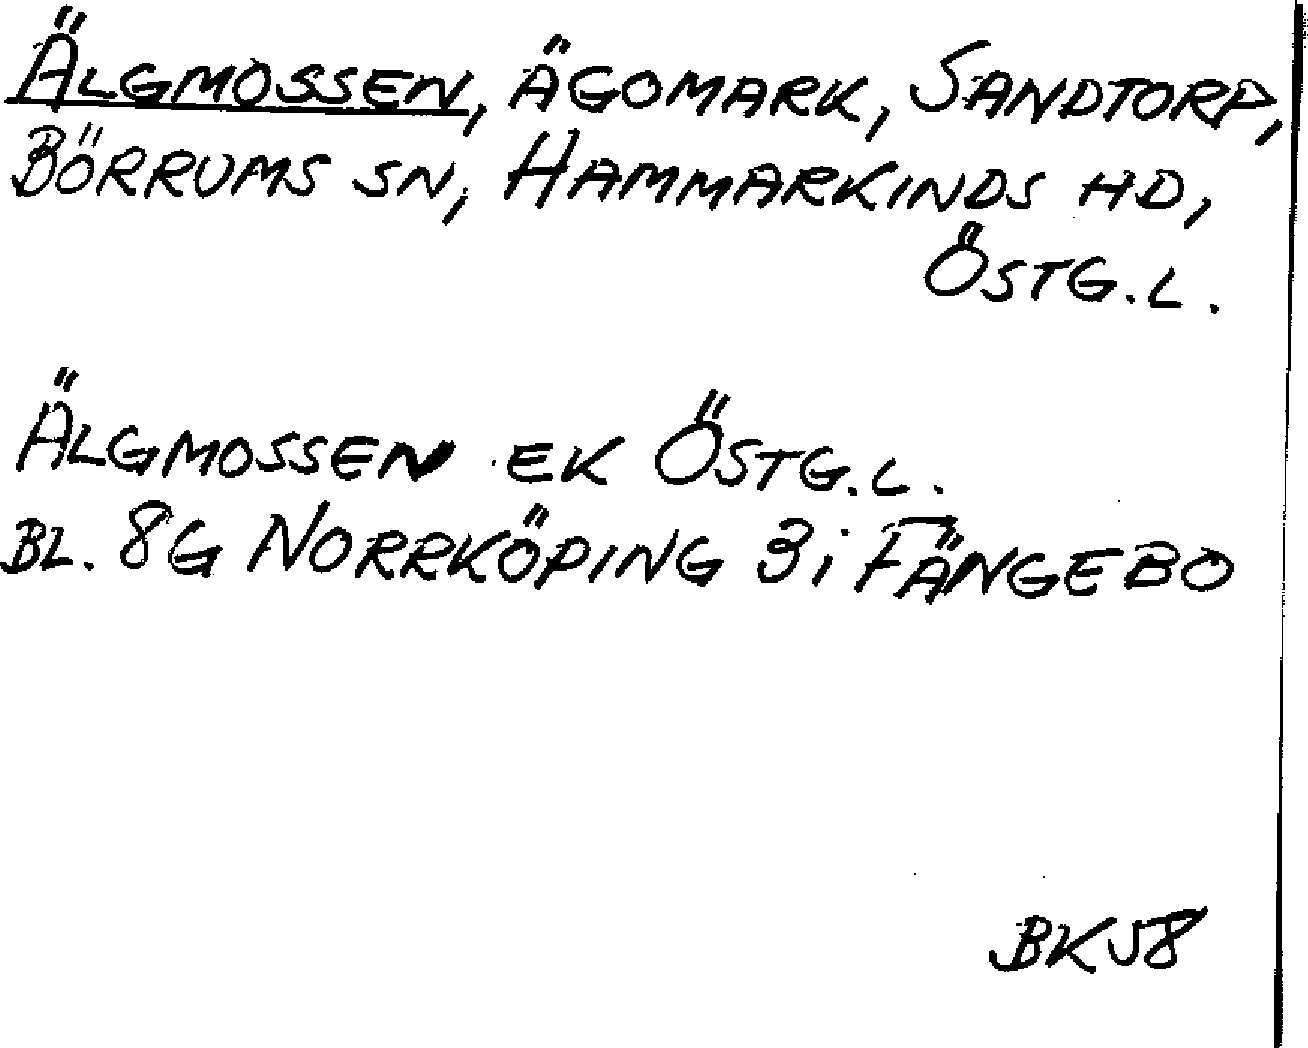 ÄLGMOSSEN, ÄGOMARK, SANDTORP,
BÖRRUMS SN, HAMMARKINDS HD,
ÖSTG.L.
ÄLGMOSSEN EK ÖSTG.L.
BL. 8G NORRKÖPING 3i FÄNGEBO
BKJ8